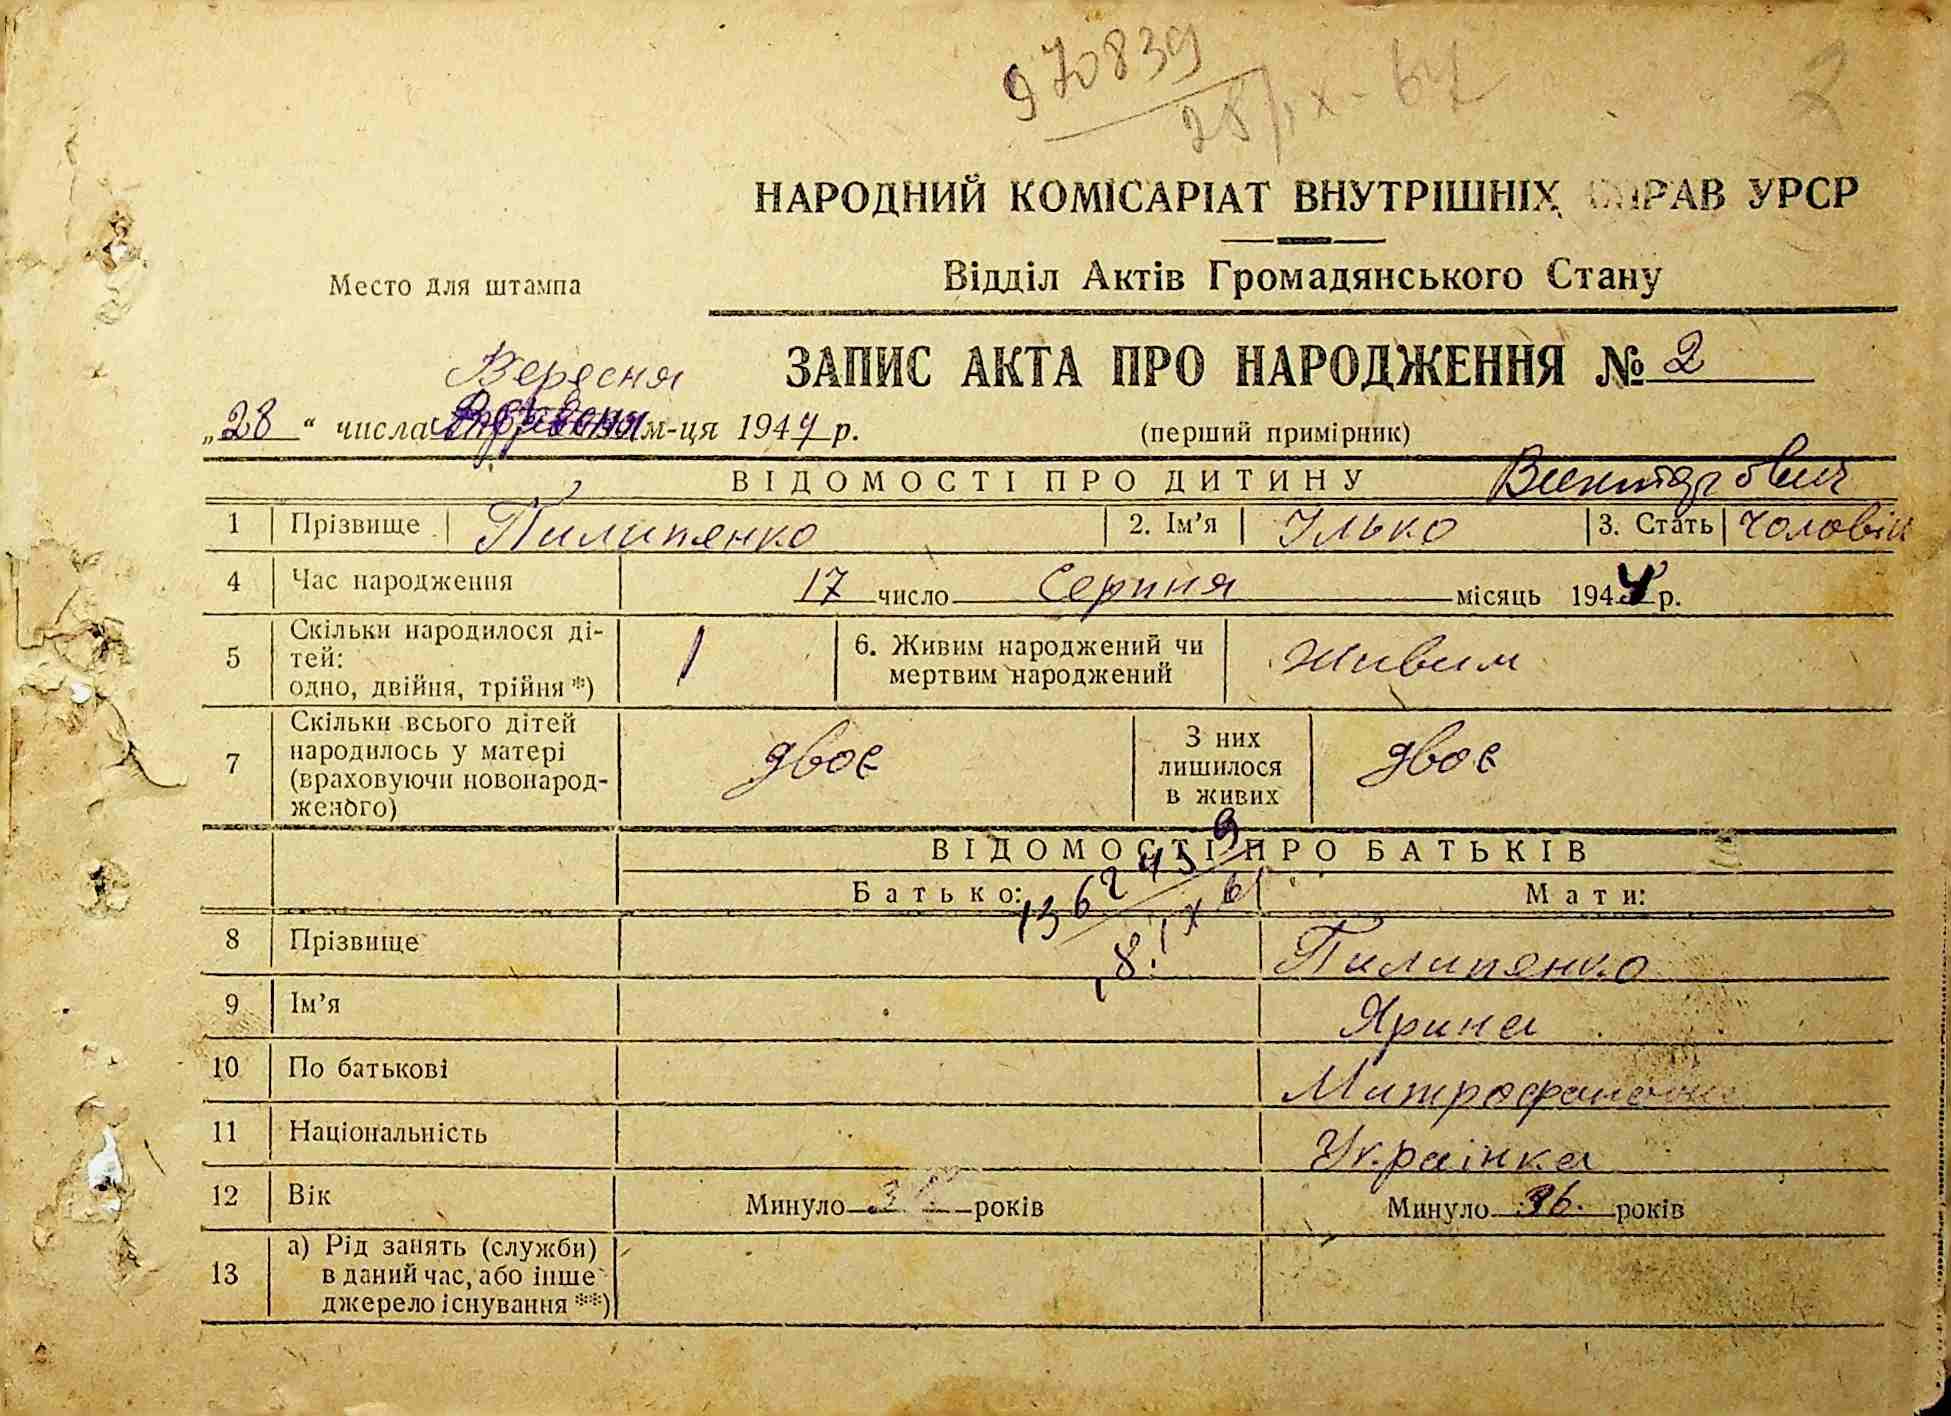 970839
28/IX-67
НАРОДНИЙ КОМІСАРІАТ ВНУТРІШНІХ СПРАВ УРСР
Відділ Актів Громадянського Стану
Место для штампа
ЗАПИС АКТА ПРО НАРОДЖЕННЯ № 2
Вересня
„28“ числа м-ця 1944 р.
(перший примірник)
ВІДОМОСТІ ПРО ДИТИНУ
1 Прізвище Пилипенко 2. Ім’я Ілько 3. Стать Чоловік
4 Час народження 17 число Серпня місяць 1944 р.
5 Скільки народилося ді-
тей:
одно, двійня, трійня *) 1 6. Живим народжений чи
мертвим народжений живим
7 Скільки всього дітей
народилось у матері
(враховуючи новонарод-
женого) двоє З них
лишилося
в живих двоє
ВІДОМОСТІ ПРО БАТЬКІВ
Батько: Мати:
8 Прізвище Пилипенко
9 Ім’я Ярина
10 По батькові Митрофановна
11 Національність Українка
12 Вік Минуло років Минуло 36. років
13 а) Рід занять (служби)
в даний час, або інше
джерело існування **)